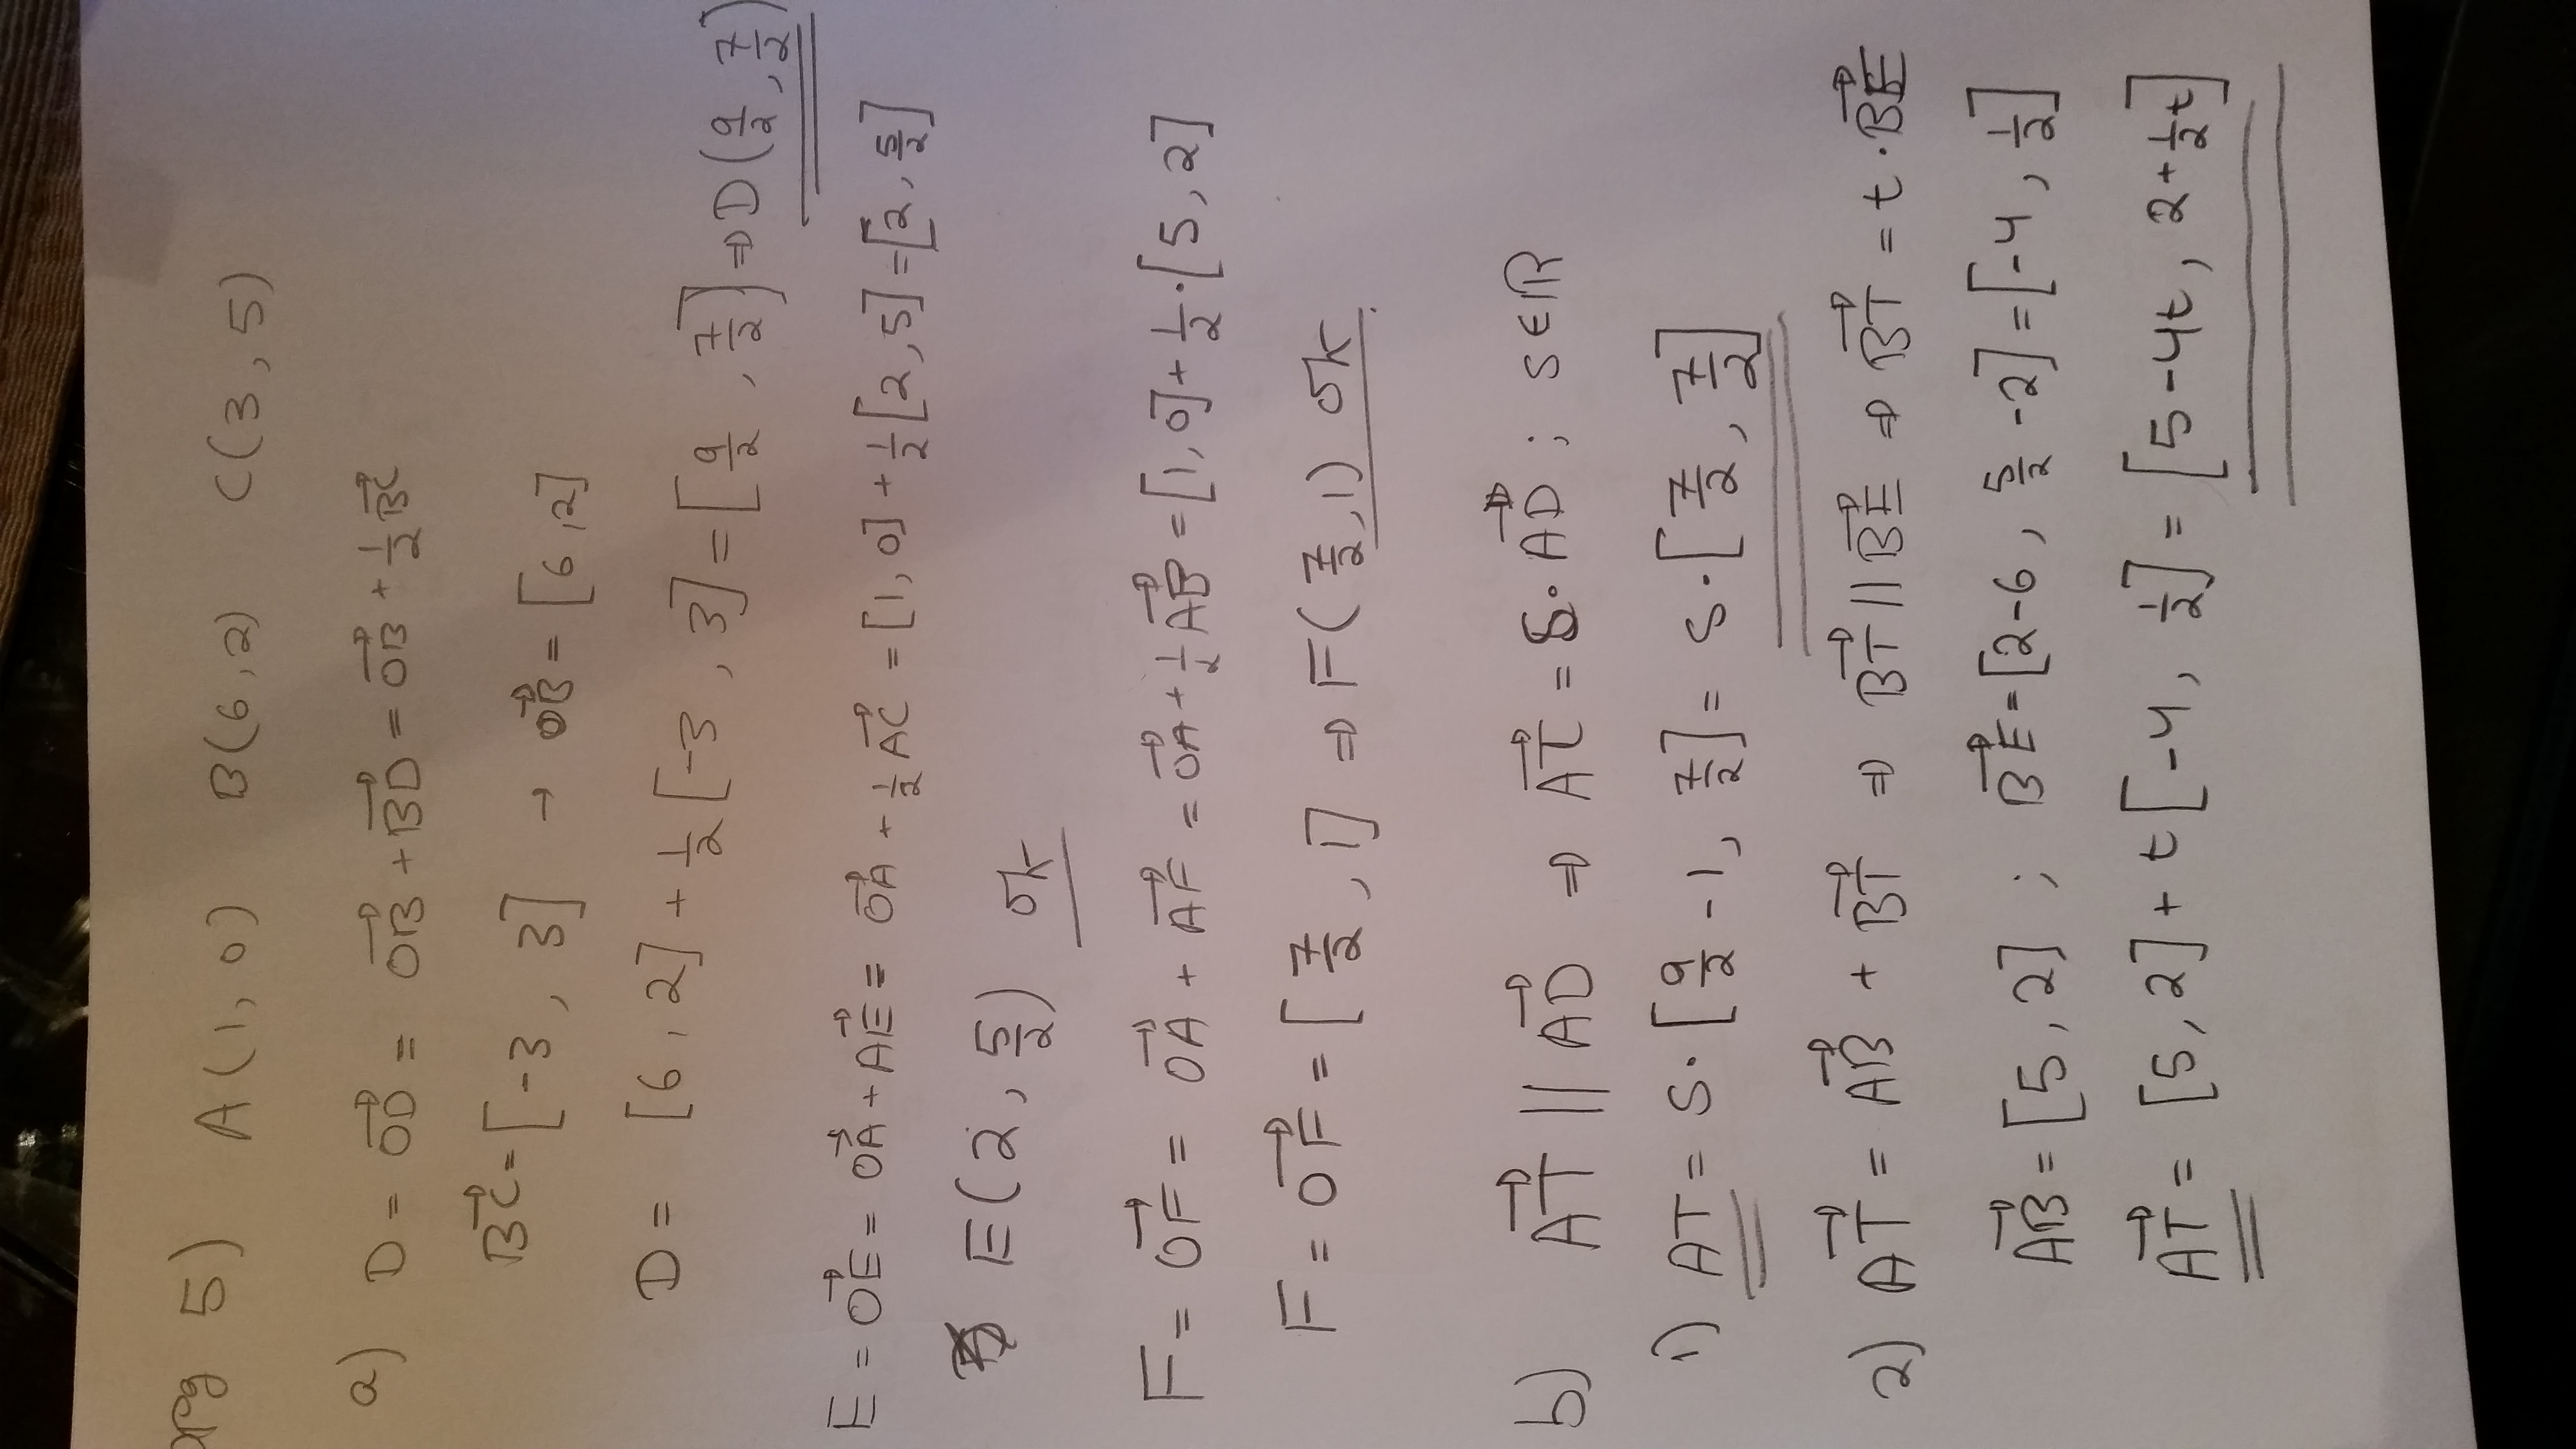 5) A(1,0) B(6,2) C(3,5)
a) D = \vec{OD} = \vec{OB} + \vec{BD} = \vec{OB} + \frac{1}{2}\vec{BC}
\vec{BC} = [-3, 3] → \vec{OB} = [6,2]
D = [6,2] + \frac{1}{2}[-3, 3] = [\frac{9}{2}, \frac{7}{2}] ⇒ D(\frac{9}{2}, \frac{7}{2})
E = \vec{OE} = \vec{OA} + \vec{AE} = \vec{OA} + \frac{1}{2}\vec{AC} = [1,0] + \frac{1}{2}[2,5] = [2, \frac{5}{2}]
E(2, \frac{5}{2}) ok
F = \vec{OF} = \vec{OA} + \vec{AF} = \vec{OA} + \frac{1}{2}\vec{AB} = [1,0] + \frac{1}{2}·[5,2]
F = \vec{OF} = [\frac{7}{2}, 1] ⇒ F(\frac{7}{2}, 1) ok
b) \vec{AT} || \vec{AD} ⇒ \vec{AT} = s·\vec{AD} ; s∈ℝ
1) AT = s·[\frac{9}{2}-1, \frac{7}{2}] = s·[\frac{7}{2}, \frac{7}{2}]
2) \vec{AT} = \vec{AB} + \vec{BT} ⇒ \vec{BT} || \vec{BE} ⇒ \vec{BT} = t·\vec{BE}
\vec{AB} = [5,2] ; \vec{BE} = [2-6, \frac{5}{2}-2] = [-4, \frac{1}{2}]
\vec{AT} = [5,2] + t[-4, \frac{1}{2}] = [5-4t, 2+\frac{1}{2}t]